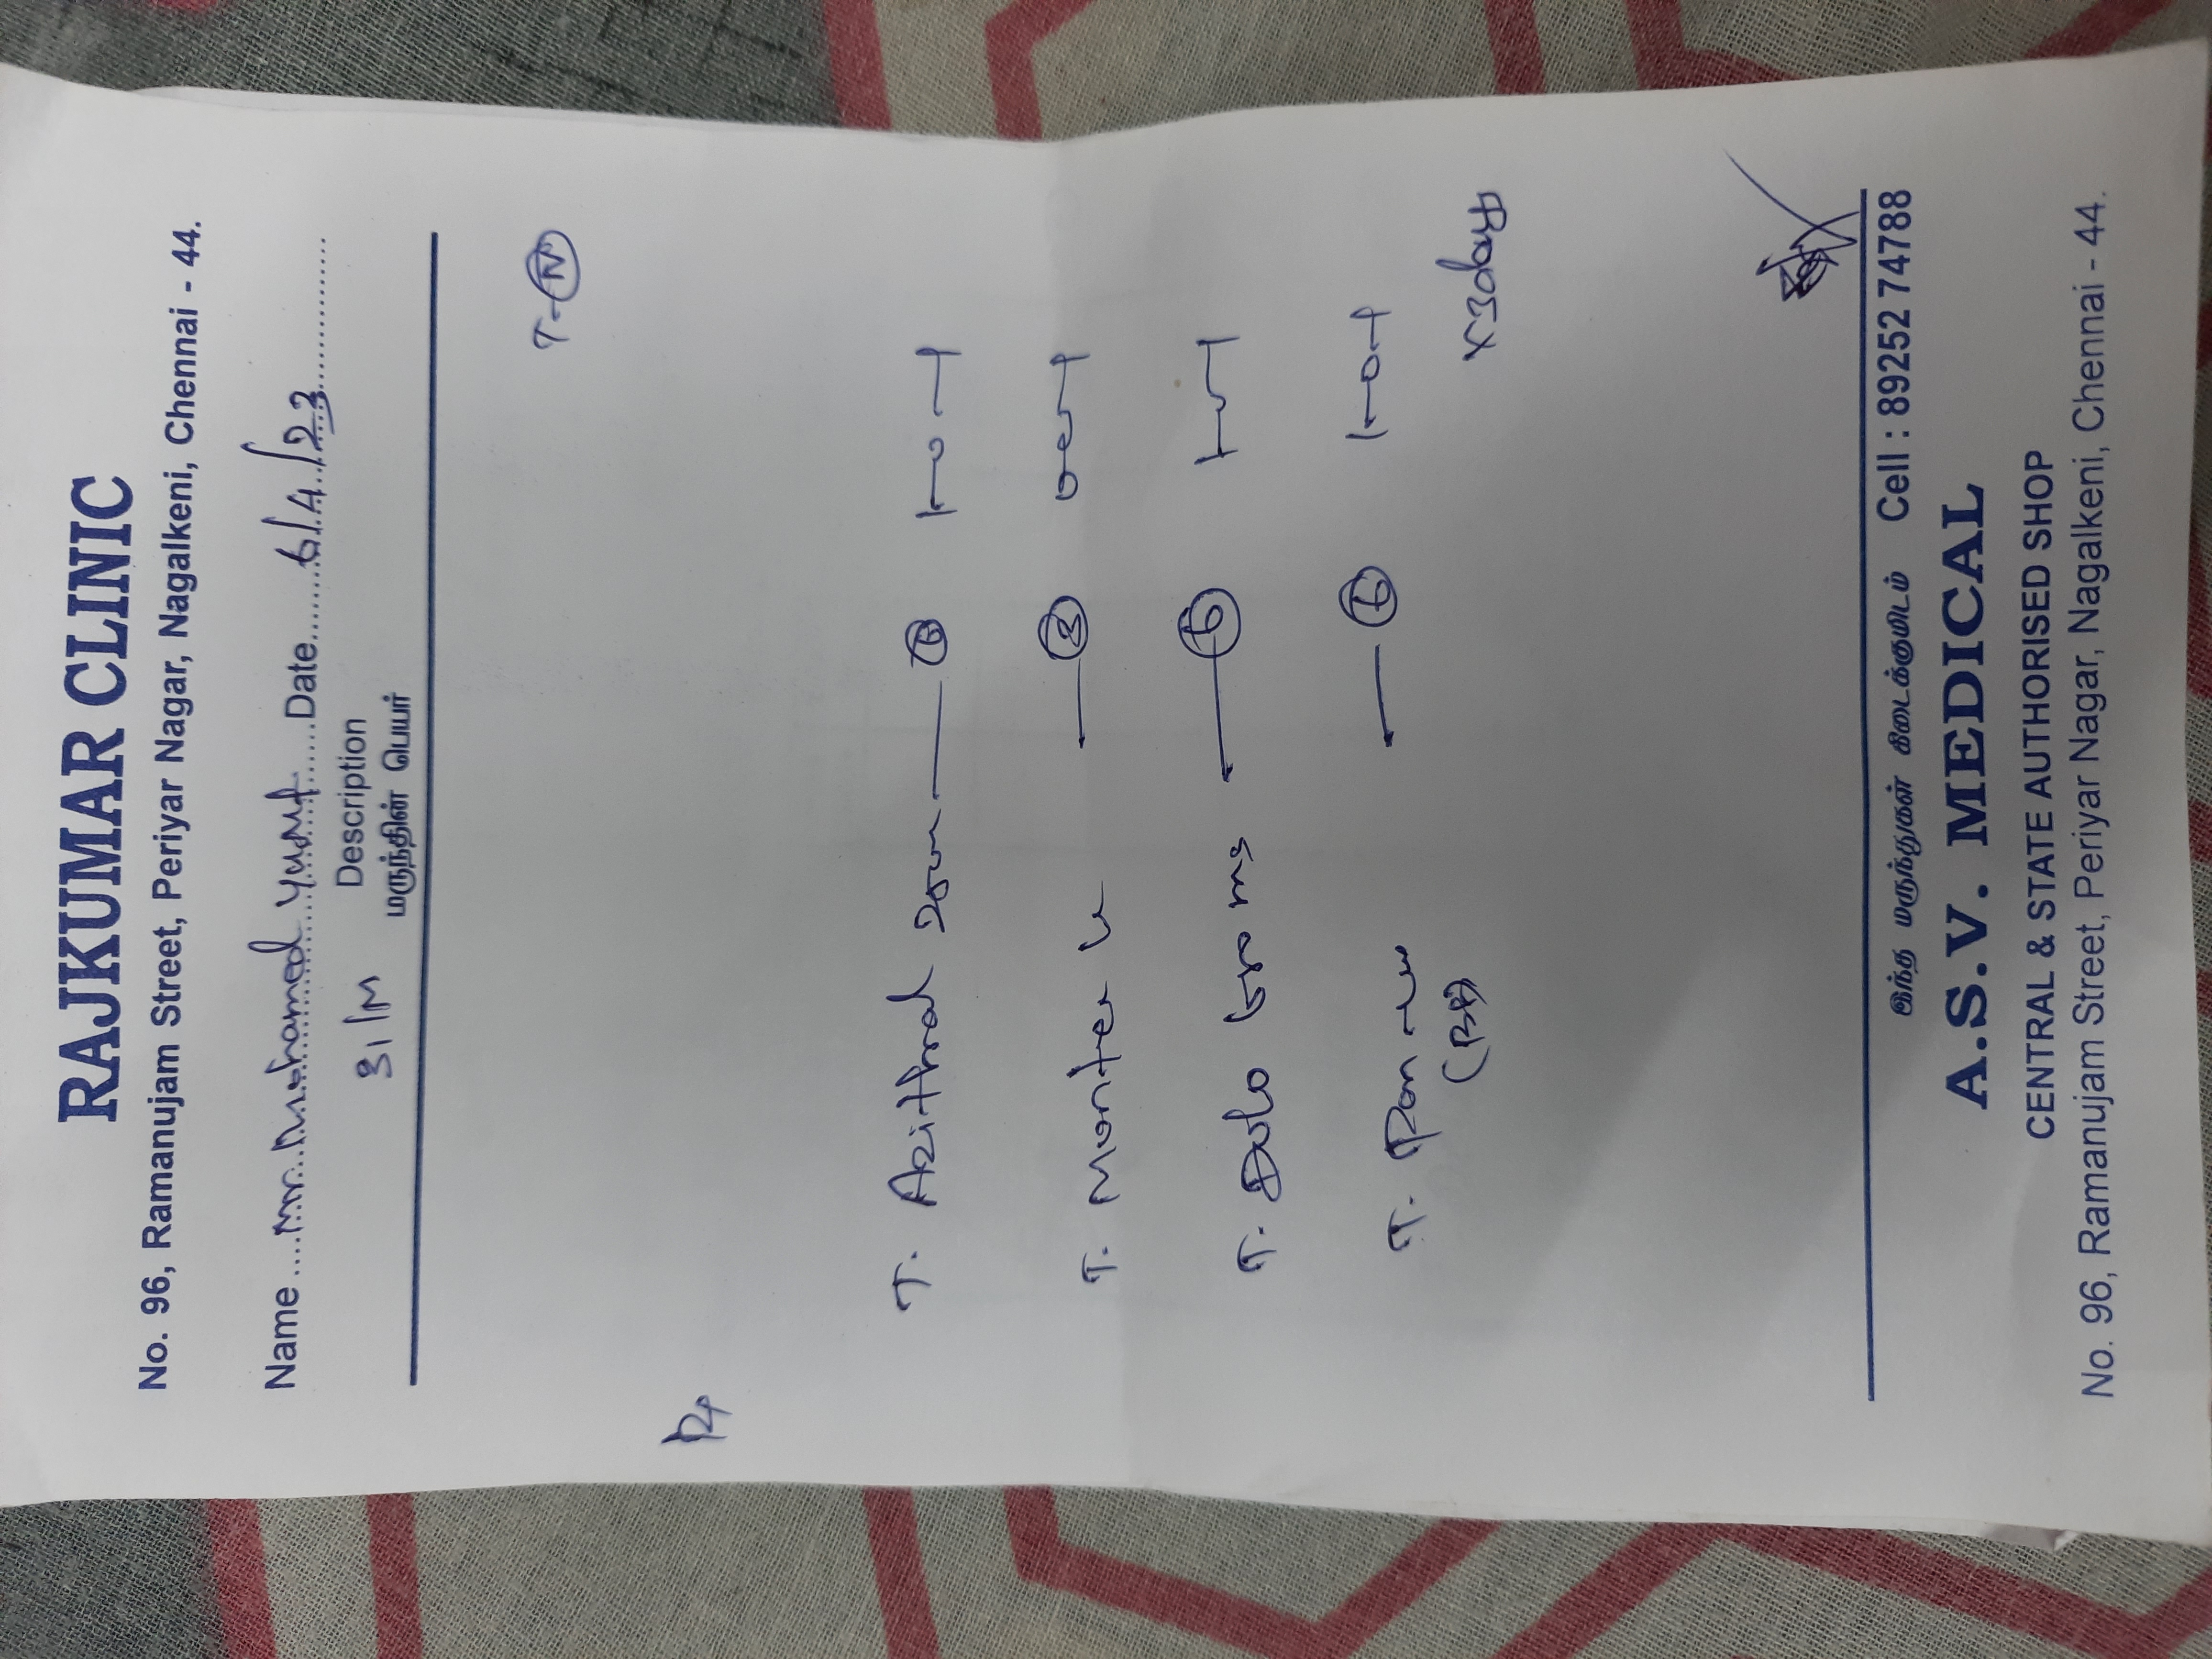 RAJKUMAR CLINIC
No. 96, Ramanujam Street, Periyar Nagar, Nagalkeni, Chennai - 44.
Name Mr. Mohamed Yusuf Date 6/4/23
31/M Description
மருந்தின் பெயர்
T-N
Rx
T. Azithral 250m 6 1-0-1
T. Montek 3 0-0-1
T. Dolo 650 mg 6 1-0-1
T. 6 1-0-1
(BF)
x 3days
இந்த மருந்துகள் கிடைக்குமிடம் Cell : 89252 74788
A.S.V. MEDICAL
CENTRAL & STATE AUTHORISED SHOP
No. 96, Ramanujam Street, Periyar Nagar, Nagalkeni, Chennai - 44.